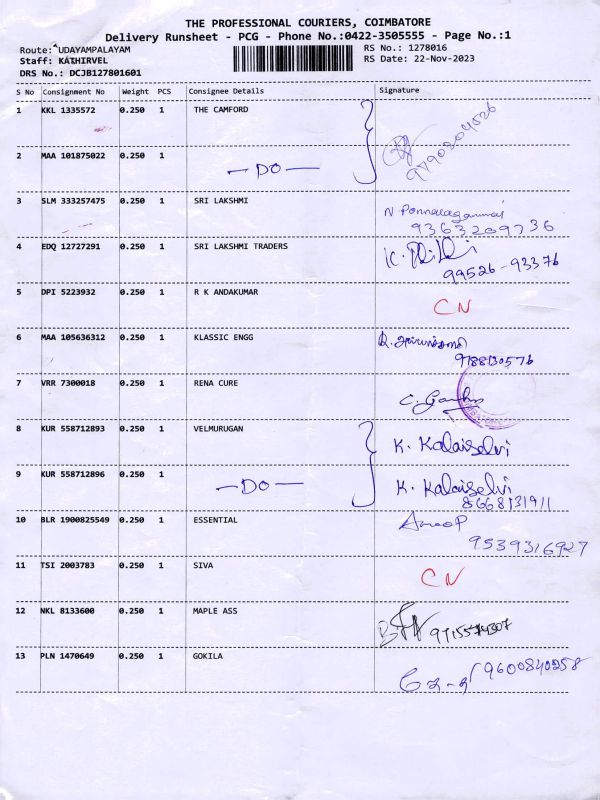 THE PROFESSIONAL COURIERS, COIMBATORE
Delivery Runsheet - PCG - Phone No.:0422-3505555 - Page No.:1
Route: UDAYAMPALAYAM RS No.: 1278016
Staff: KATHIRVEL RS Date: 22-Nov-2023
DRS No.: DCJB127801601
S No Consignment No Weight PCS Consignee Details Signature
1 KKL 1335572 0.250 1 THE CAMFORD
9790204526
2 MAA 101875022 0.250 1
- DO -
3 SLM 333257475 0.250 1 SRI LAKSHMI
9363209736
4 EDQ 12727291 0.250 1 SRI LAKSHMI TRADERS
99526-93376
5 DPI 5223932 0.250 1 R K ANDAKUMAR
CN
6 MAA 105636312 0.250 1 KLASSIC ENGG
7 VRR 7300018 0.250 1 RENA CURE
8 KUR 558712893 0.250 1 VELMURUGAN
K. Kalaiselvi
9 KUR 558712896 0.250 1
- DO - K. Kalaiselvi
8668131911
10 BLR 1900825549 0.250 1 ESSENTIAL
Anoop
9539316927
11 TSI 2003783 0.250 1 SIVA
CN
12 NKL 8133600 0.250 1 MAPLE ASS
13 PLN 1470649 0.250 1 GOKILA
9600840258